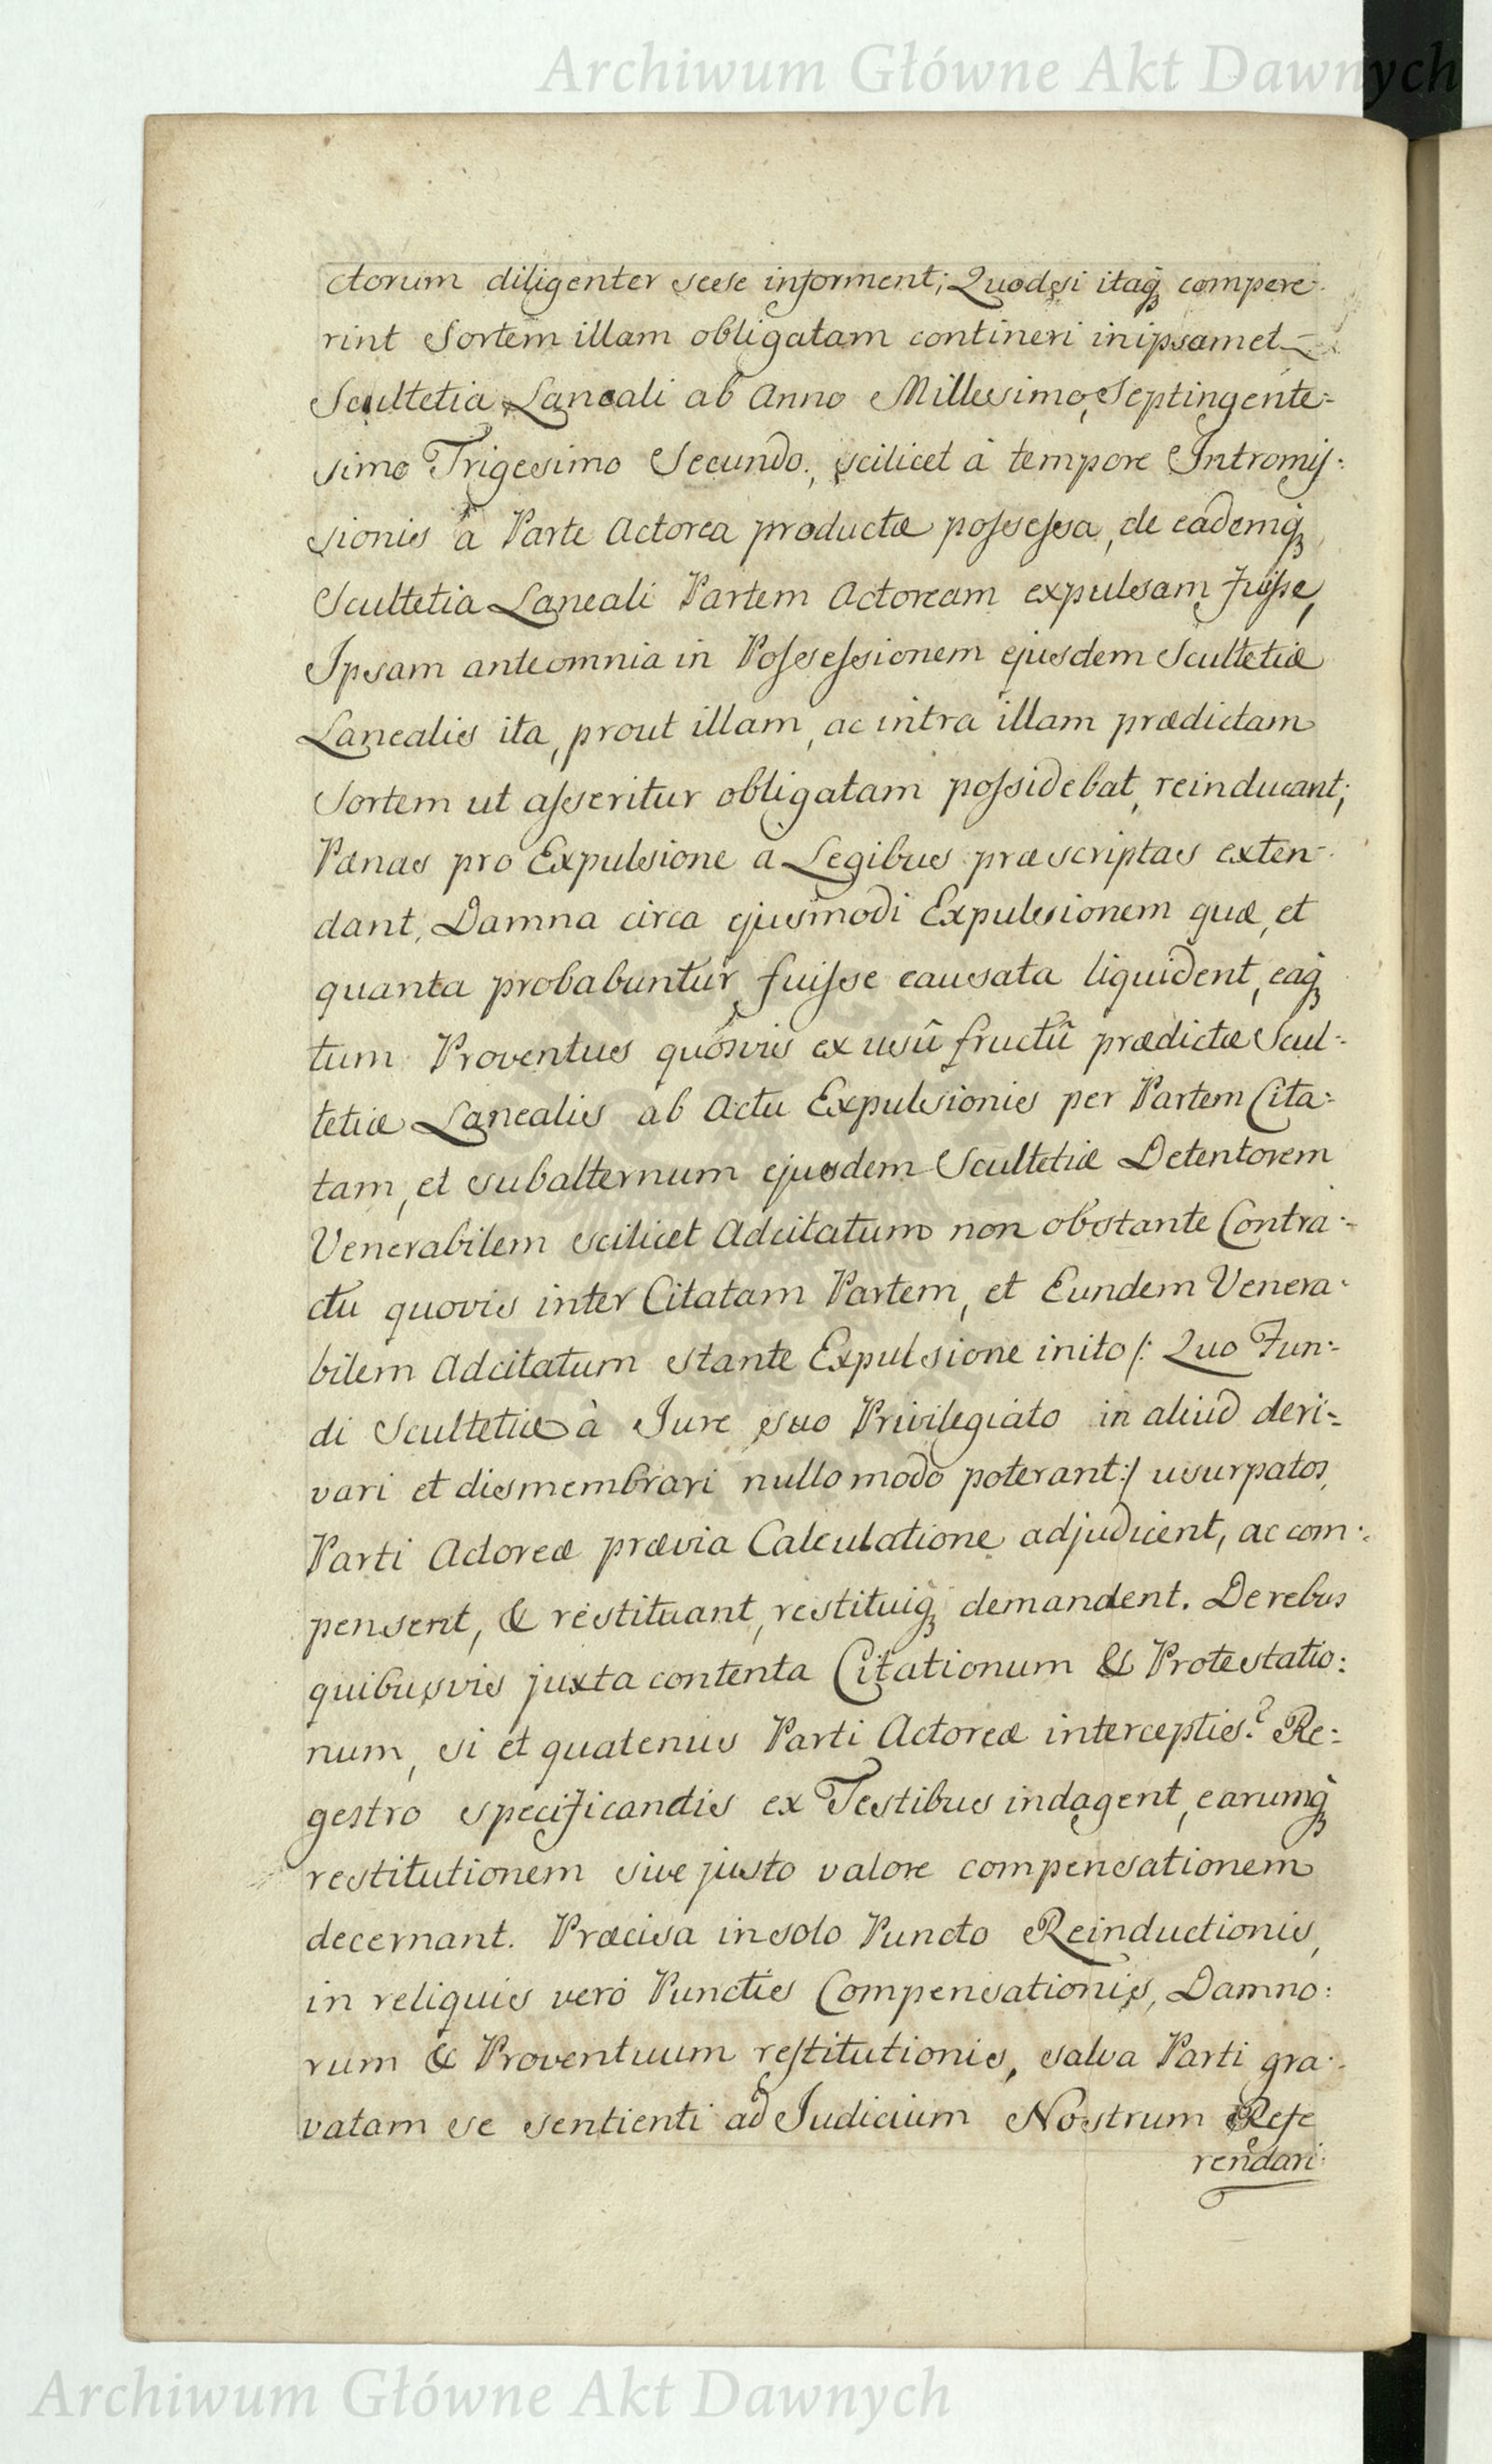 Archiwum Główne Akt Dawnych
ctorum diligenter sese informent; Quodsi itaq́ compere-
rint Sortem illam obligatam contineri in ipsamet
Scultetia Laneali ab Anno Millesimo, Septingente-
simo Trigesimo Secundo, scilicet à tempore Intromis-
sionis à Parte Actorea productæ possessa, de eademq́
Scultetia Laneali Partem Actoream expulsam fuisse,
Ipsam anteomnia in Possessionem ejusdem Scultetiæ
Lanealis ita, prout illam, ac intra illam prædictam
Sortem ut asseritur obligatam possidebat, reinducant;
Pænas pro Expulsione a Legibus præscriptas exten-
dant, Damna circa ejusmodi Expulsionem quæ, et
quanta probabuntur fuisse causata liquident, eaq́
tum Proventus quosvis ex usû fructû prædictæ Scul-
tetiæ Lanealis ab Actu Expulsionis per Partem Cita-
tam, et subalternum ejusdem Scultetiæ Detentorem
Venerabilem scilicet Adcitatum non obstante Contra-
ctu quovis inter Citatam Partem, et Eundem Venera-
bilem Adcitatum stante Expulsione inito /: Quo Fun-
di Scultetiæ à Jure suo Privilegiato in aliud deri-
vari et dismembrari nullo modo poterant :/ usurpatos,
Parti Actoreæ prævia Calculatione adjudicent, ac com-
pensent, & restituant, restituiq́ demandent. De rebus
quibusvis juxta contenta Citationum & Protestatio:
num, si et quatenus Parti Actoreæ interceptis? Re:
gestro specificandis ex Testibus indagent, earumq́
restitutionem sive justo valore compensationem
decernant. Præcisa in solo Puncto Reinductionis,
in reliquis vero Punctis Compensationis, Damno:
rum & Proventuum restitutionis, salva Parti gra-
vatam se sentienti ad Judicium Nostrum Refe
rendari:
Archiwum Główne Akt Dawnych